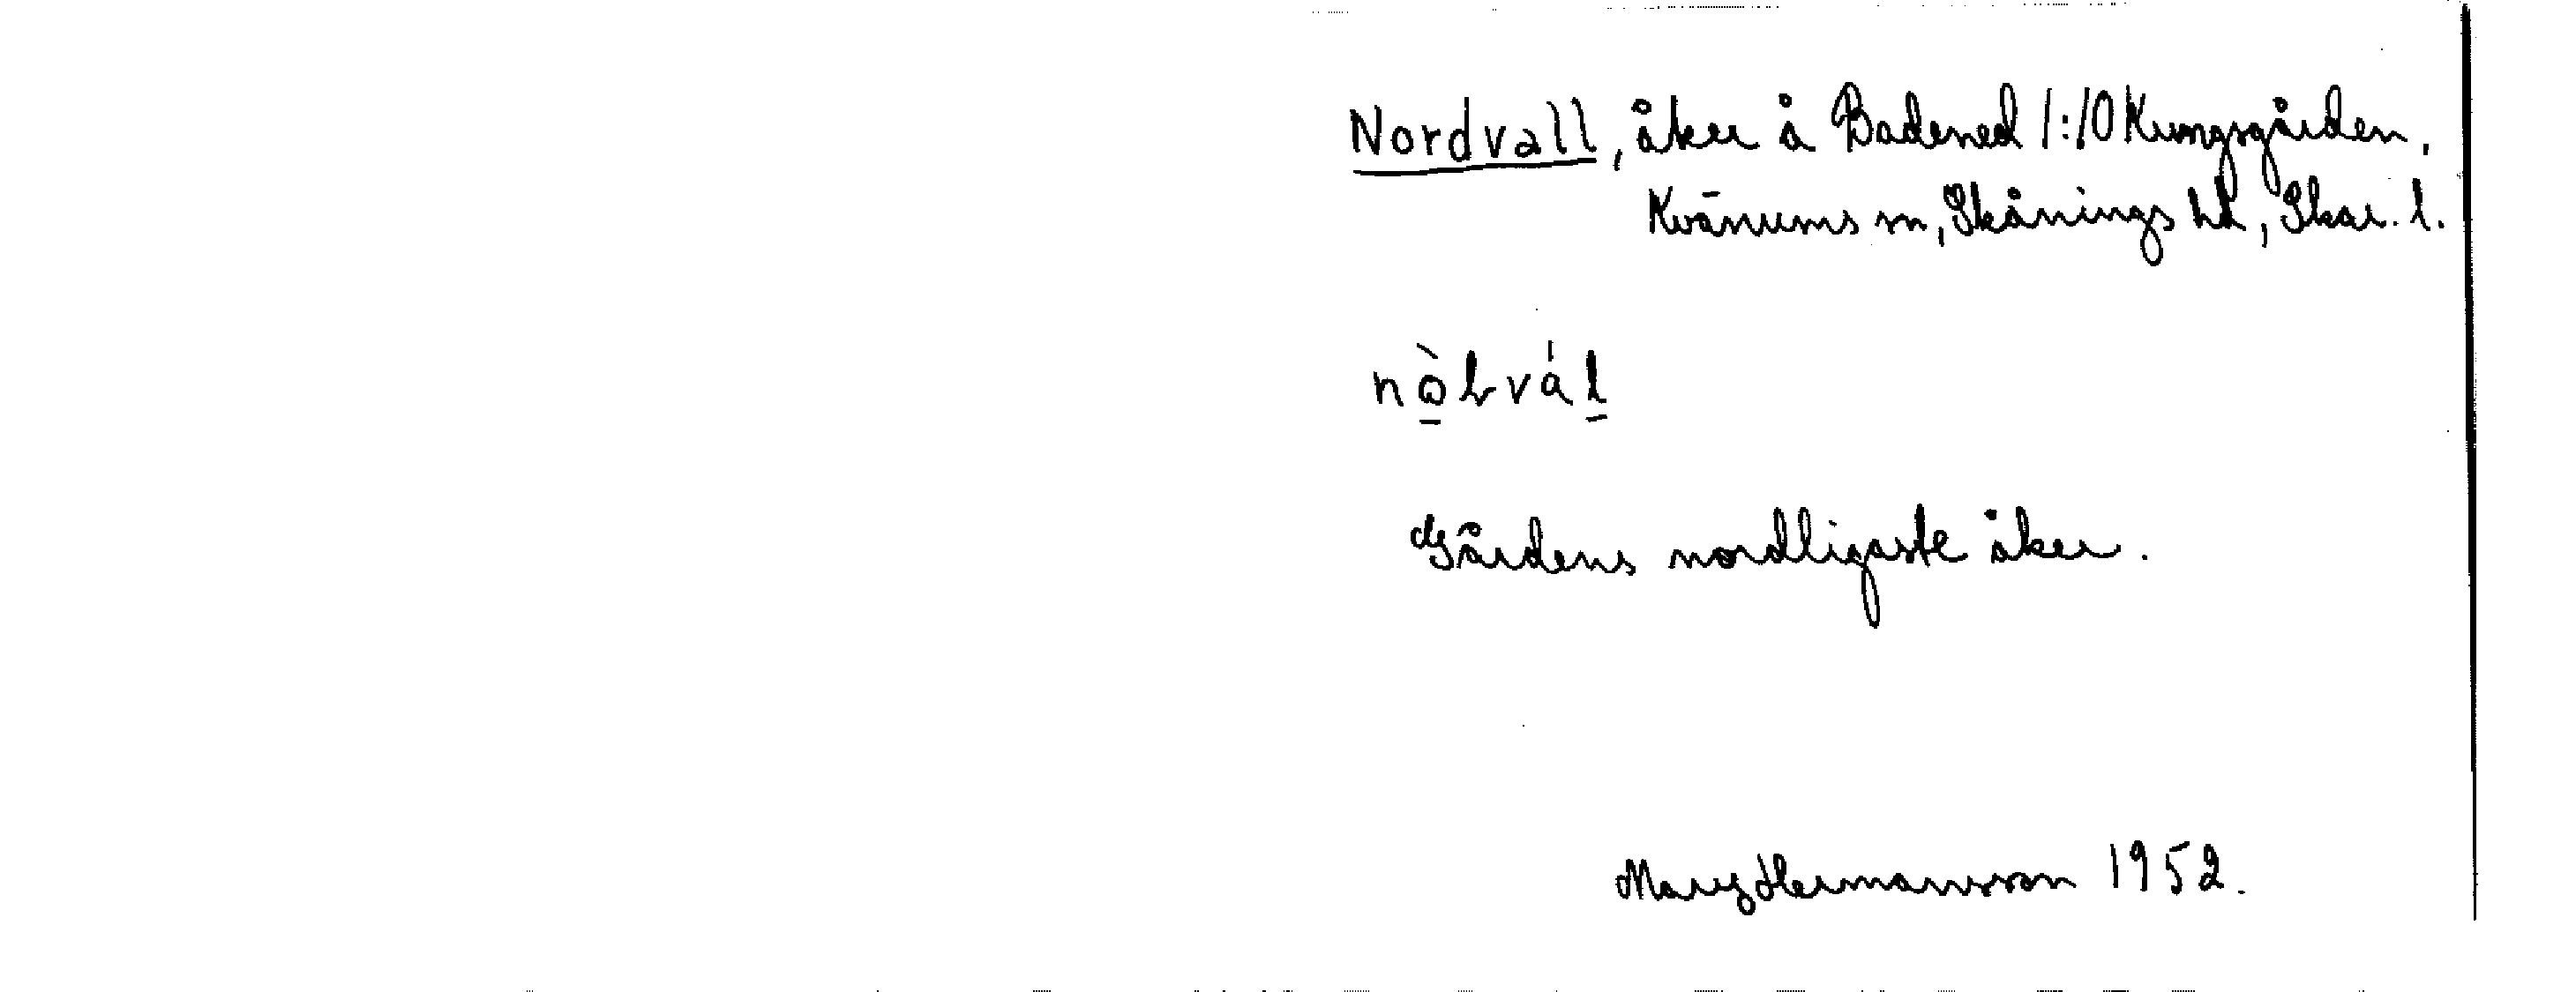 Nordvall, åker å Badened 1:10 Kungsgården,
Kvänums sn, Skånings hd, Skar. l.
nòL vál
Gårdens nordligaste åker.
Mary Hermansson 1952.